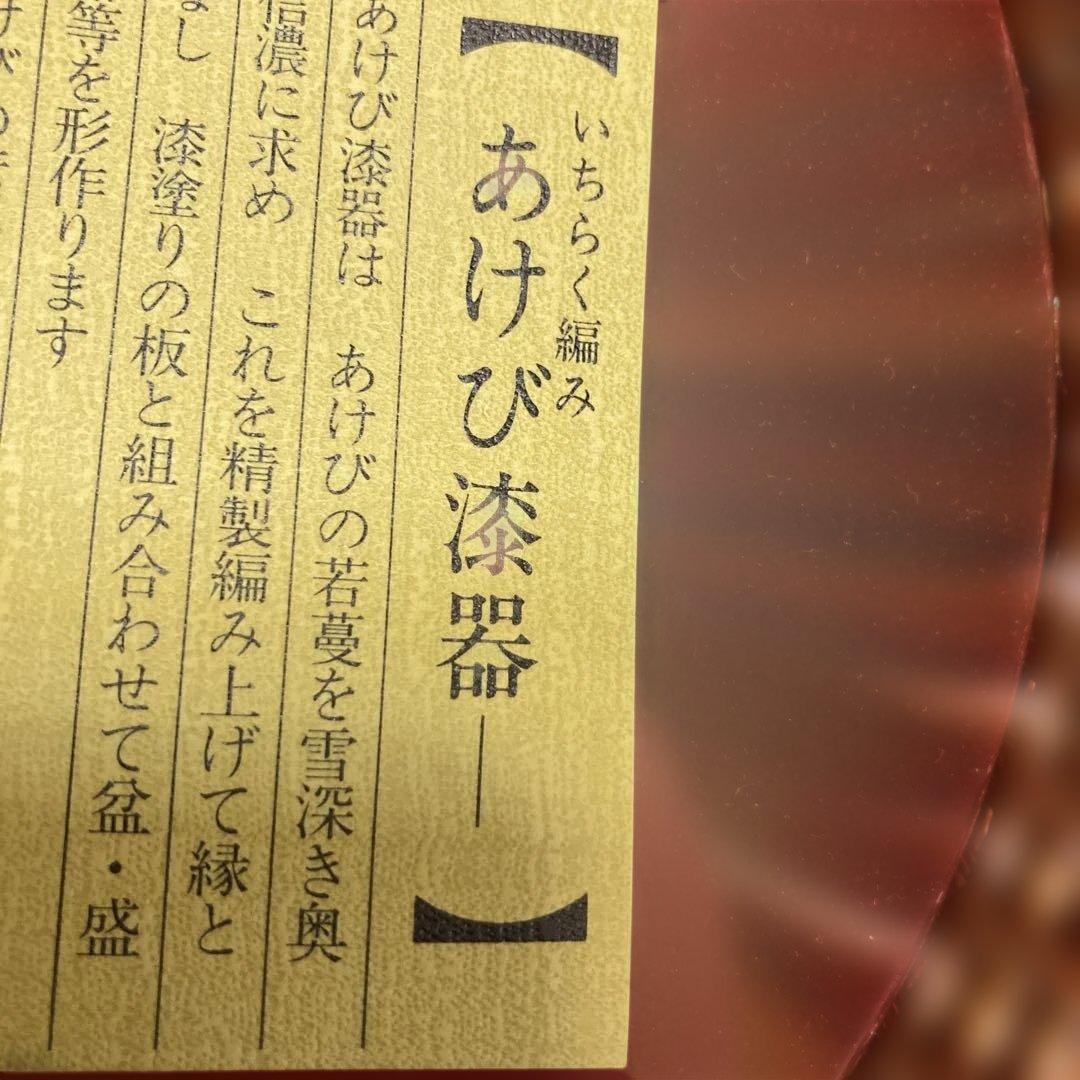 【いちらく編み
あけび漆器―】
あけび漆器は　あけびの若蔓を雪深き奥
信濃に求め　これを精製編み上げて縁と
なし　漆塗りの板と組み合わせて盆・盛
等を形作ります